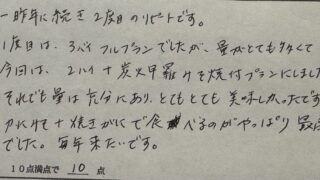 一昨年に続き2度目のリピートです。
1度目は、3パイフルプランでしたが、量がとても多くて
今回は、2ハイ+炭火甲羅みそ焼付プランにしました
それでも量は充分にあり、とてもとても美味しかったです
カニみそ+焼きがにで食べるのがやっぱり最高
でした。毎年来たいです。
10点満点で 10 点